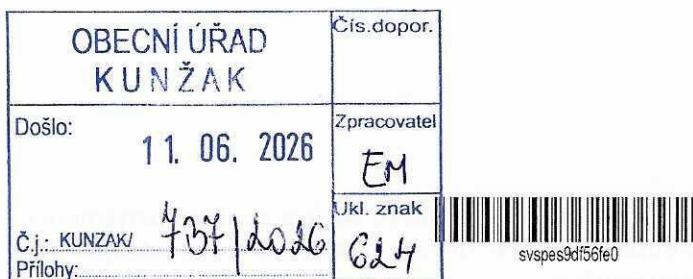 OBECNÍ ÚŘAD
KUNŽAK
Čís.dopor.
Došlo:
11. 06. 2026
Zpracovatel
EM
Č.j.: KUNZAK/ 737/2026
Ukl. znak
624
Přílohy:
svspes9df56fe0